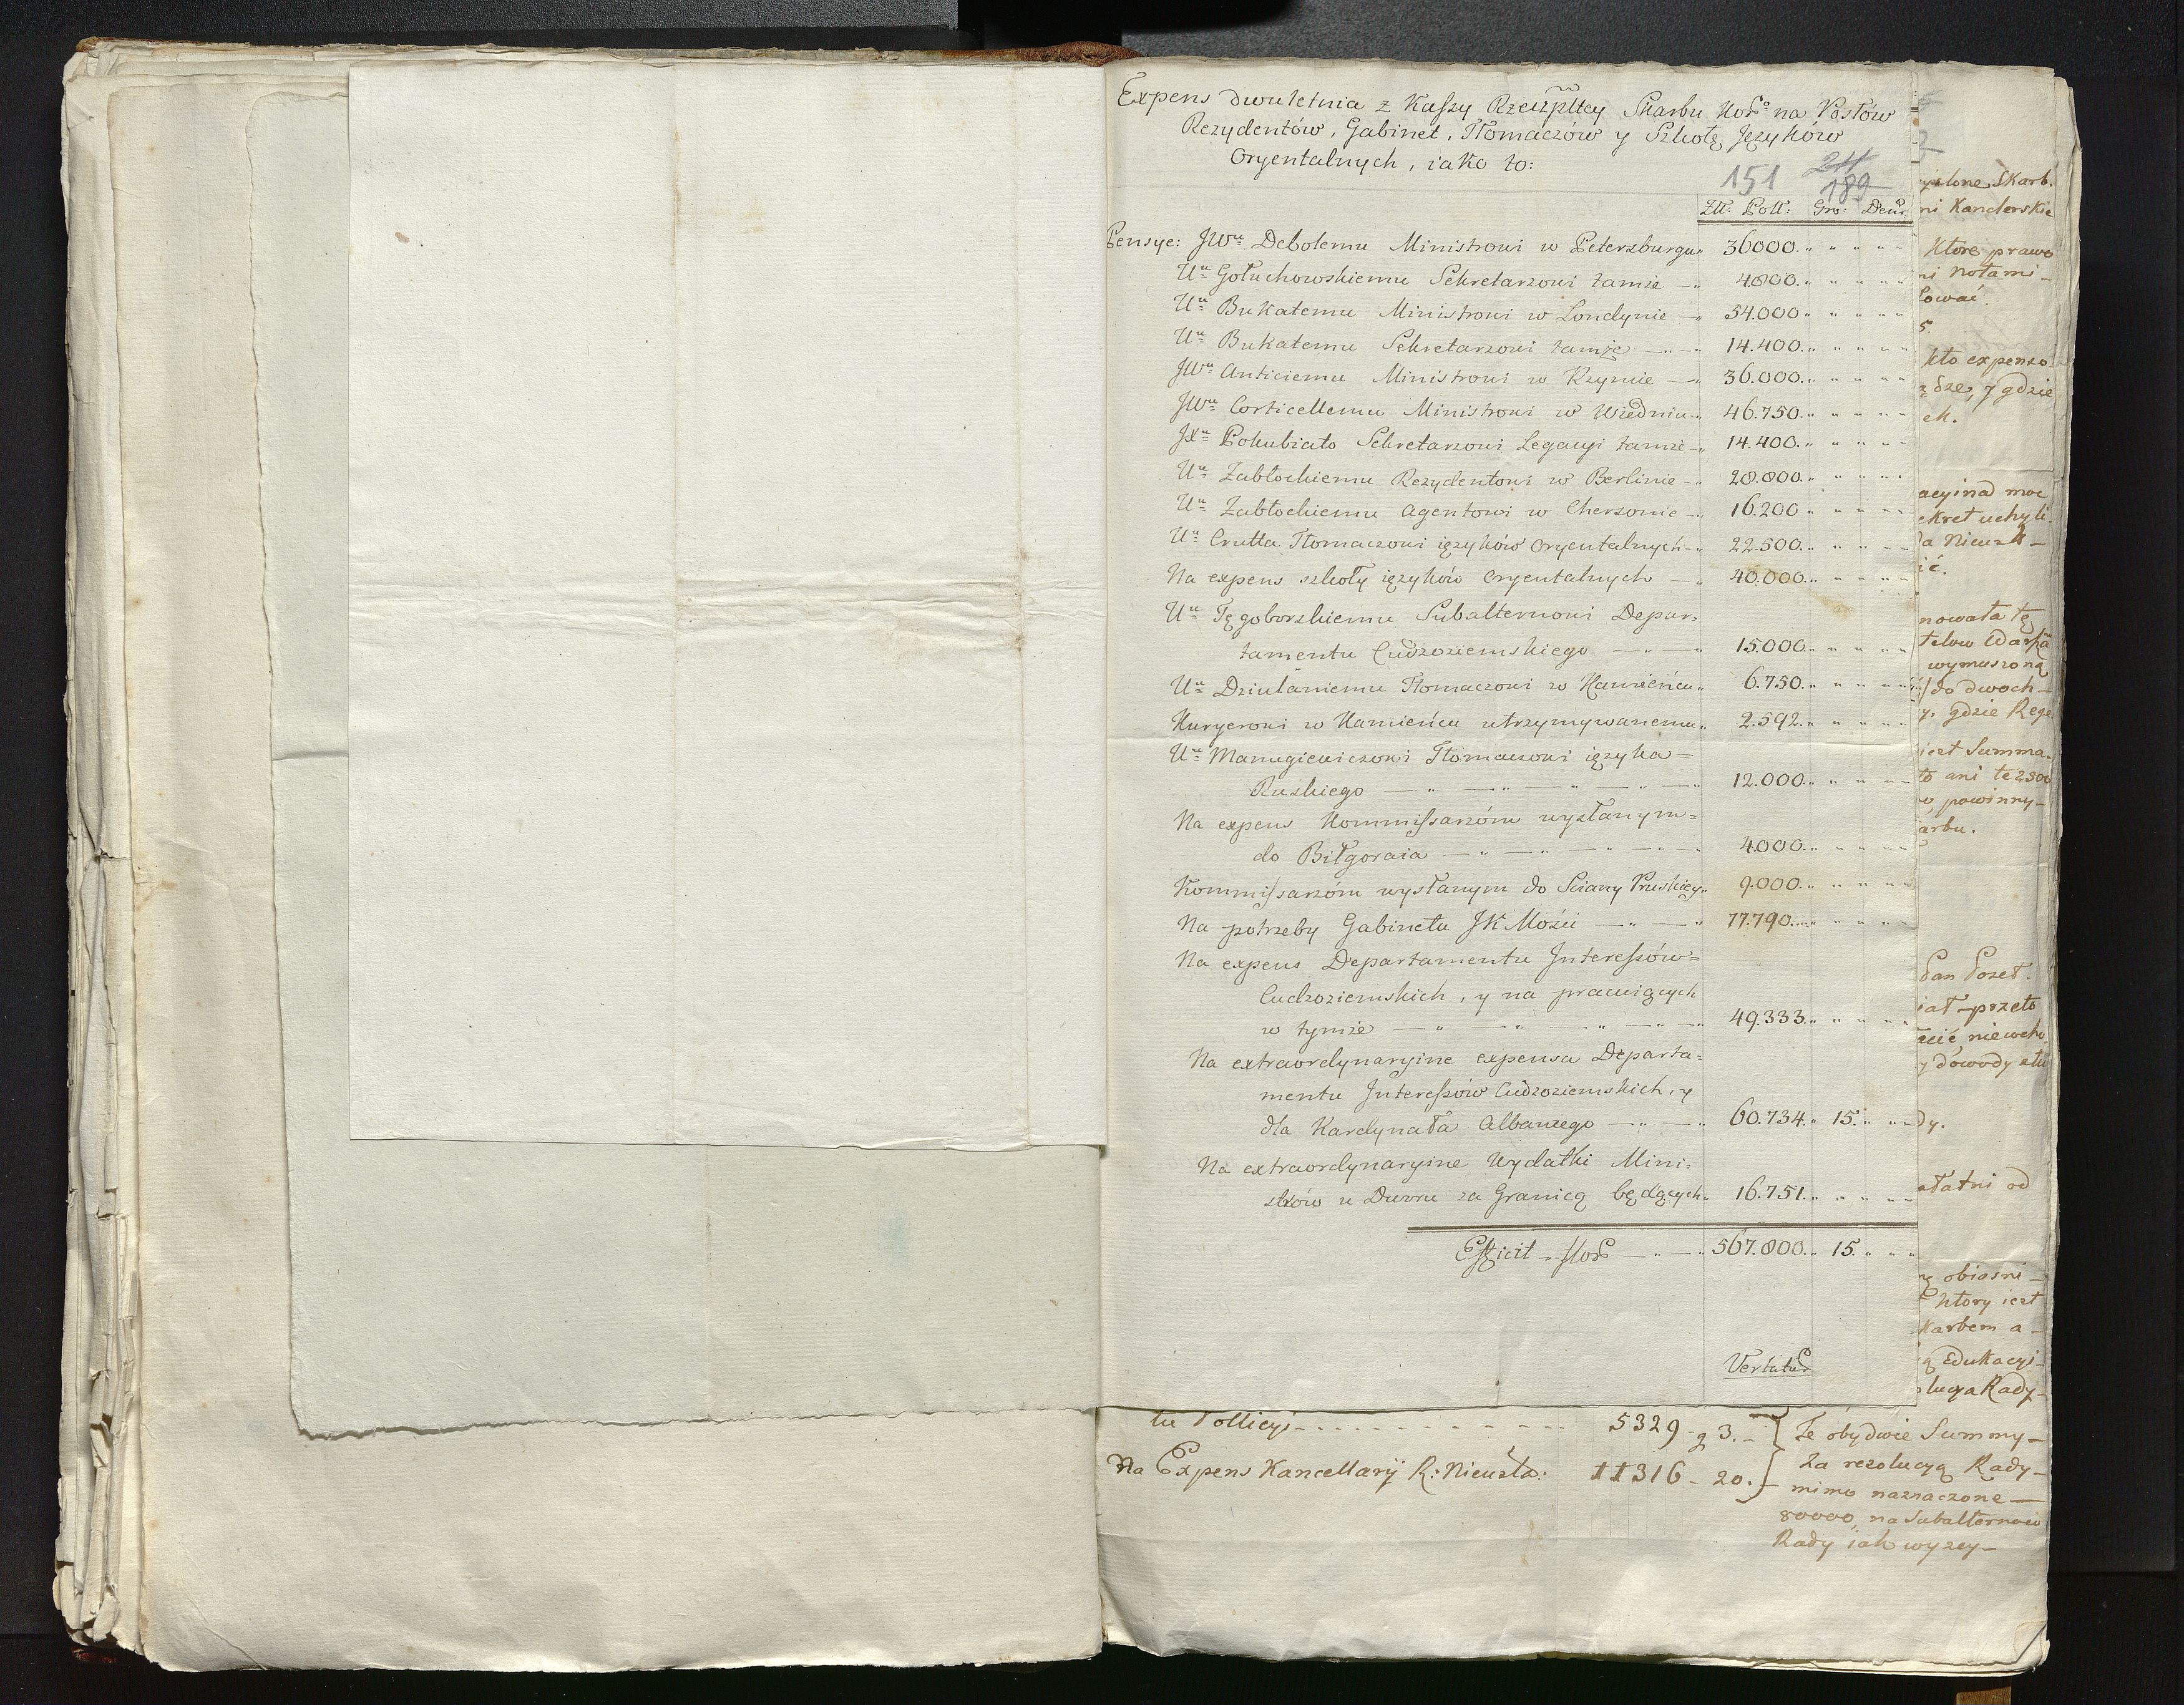 Expens dwuletnia z Kaſsy Rzeczpltey Skarbu Korº na Posłów
Rezydentów, Gabinet, Tłomaczów y Szkołę Języków
Oryentalnych, iako to:
151 211
189
Złł: Poll: Gro: Den:
Pensye: JWu Debolemu Ministrowi w Petersburgu 36000.
Uu Gołuchowskiemu Sekretarzowi tamże — 4800.
Uu Bukatemu Ministrowi w Londynie — 54.000.
Uu Bukatemu Sekretarzowi tamże — 14.400.
JWu Anticiemu Ministrowi w Rzymie — 36.000.
JWu Corticellemu Ministrowi w Wiedniu 46.750.
JXu Pokubiato Sekretarzowi Legacyi tamże 14.400.
Uu Zabłockiemu Rezydentowi w Berlinie 28.800.
Uu Zabłockiemu Agentowi w Chersonie 16.200
Uu Crutta Tłomaczowi ięzyków Oryentalnych 22.500.
Na expens szkoły ięzyków Oryentalnych — 40.000.
Uu Tęgoborskiemu Subalternowi Depar=
tamentu Cudzoziemskiego — 15.000.
Uu Dziulaniemu Tłomaczowi w Kamieńcu 6.750.
Kuryerowi w Kamieńcu utrzymywanemu 2.592.
Uu Manugiewiczowi Tłomaczowi ięzyka=
Ruskiego — 12.000.
Na expens Kommiſsarzóm wysłanym=
do Biłgoraia — 4.000.
Kommiſsarzóm wysłanym do Sciany Pruskiey 9.000.
Na potrzeby Gabinetu JK Mości — 77.790.
Na expens Departamentu Intereſsów=
Cudzoziemskich, y na pracuiących
w tymże — 49.333.
Na extraordynaryine expensa Departa=
mentu Intereſsów Cudzoziemskich, y
dla Kardynała Albaniego — 60.734. 15.
Na extraordynaryine Wydatki Mini=
strów u Dworu za Granicą będących 16.751.
Efficit flor — 567.800. 15.
Vertatur
tu Policyi 5329 - 3. — } Te obydwie Summy —
Na Expens Kancellaryi R: Nieust: 11316 - 20. } Za rezolucyą Rady —
mimo naznaczone —
80000, na Subalternow
Rady iak wyzey —
Skarb.
ni Kanclerskie
Ktore prawo
ni notami —
lować.
5.
kto expenso
dze, y gdzie
ch.
acyinad moc
ekret uchyli
ić.
nowała tę
wymuszoną
do dwoch —
y. gdzie Rege
iest Summa
to ani te 2500
powinny —
arbu.
iał przeto
y dowody
dy.
od
obiasni —
ktory iest
karbem a —
Edukacyi
lucya Rady —